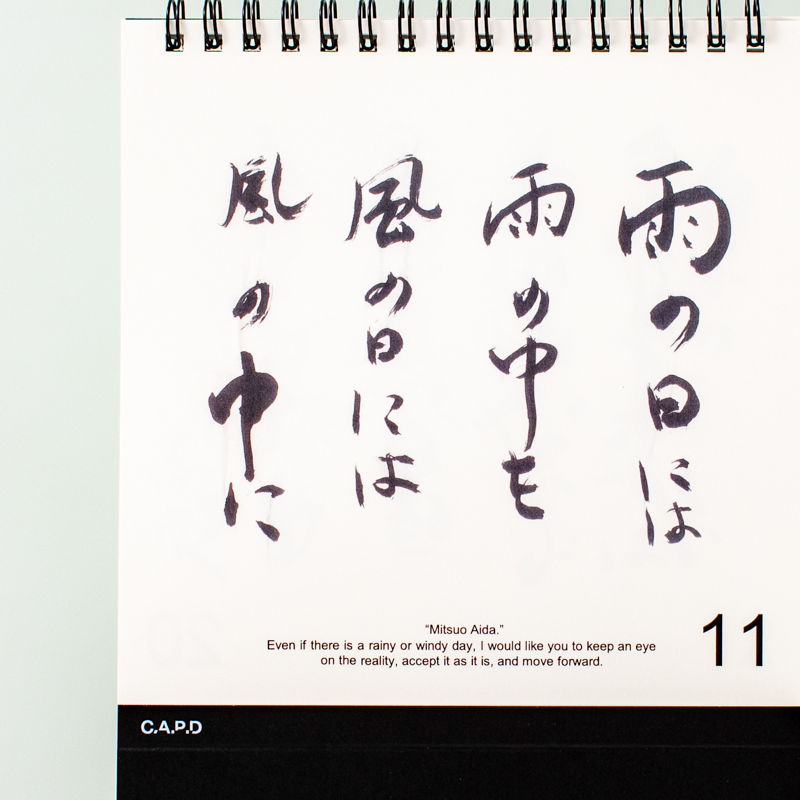 雨の日には
雨の中を
風の日には
風の中に
“Mitsuo Aida.”
Even if there is a rainy or windy day, I would like you to keep an eye
on the reality, accept it as it is, and move forward.
11
C.A.P.D